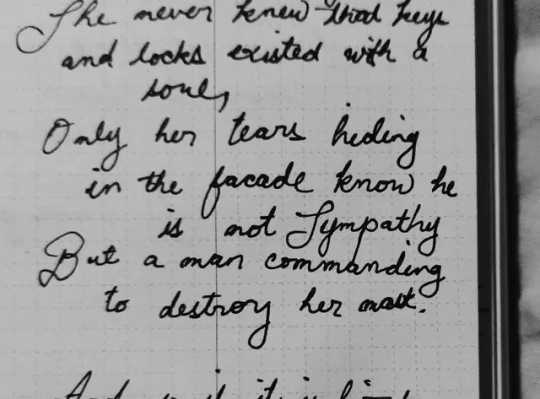 She never knew that keys
and locks existed with a
soul,
Only her tears hiding
in the facade know he
is not Sympathy
But a man commanding
to destroy her mask.
And